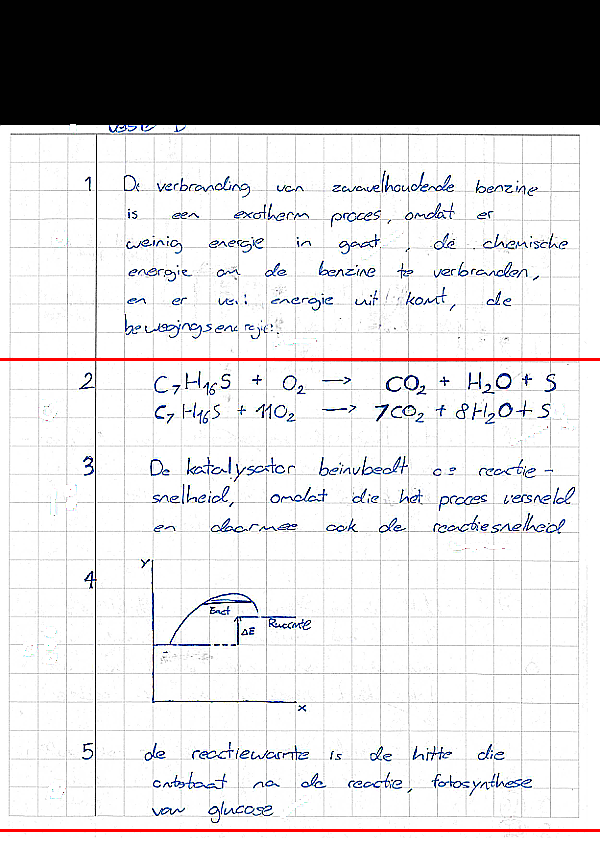 1 De verbranding van zwavelhoudende benzine
is een exotherm proces, omdat er
weinig energie in gaat, de chemische
energie om de benzine te verbranden,
en er veel energie uit komt, de
bewegingsenergie.
2 C₇H₁₆S + O₂ → CO₂ + H₂O + S
C₇H₁₆S + 11O₂ → 7CO₂ + 8H₂O + S
3 De katalysator beinvbedt de reactie-
snelheid, omdat die het proces versneld
en daarmee ook de reactiesnelheid
4 Y
Eact
ΔE
x
5 de reactiewarmte is de hitte die
ontstaat na de reactie, fotosynthese
van glucose